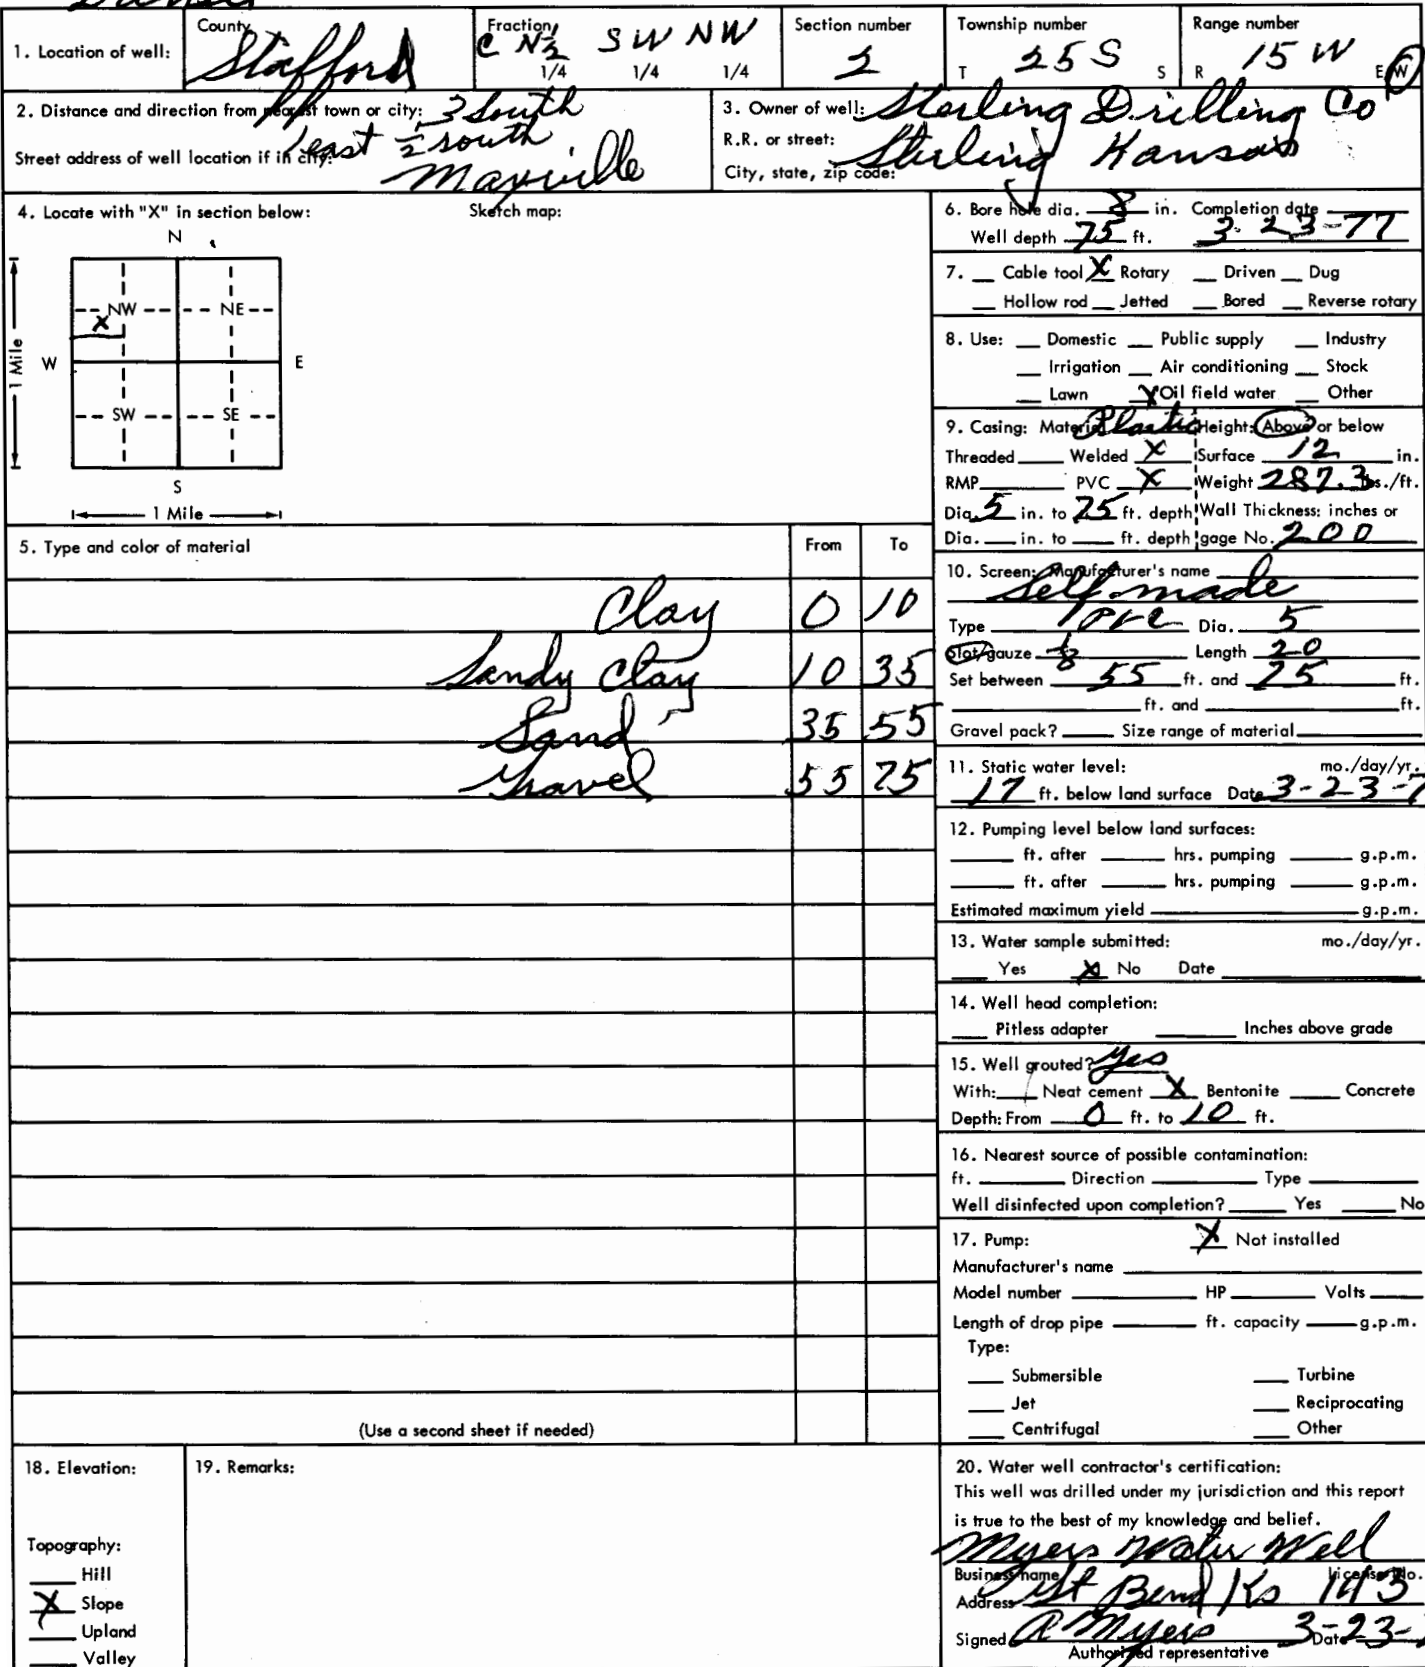 County Fraction Section number Township number Range number
1. Location of well: Stafford C N½ SW NW 2 T 25 S S R 15 W E W
1/4 1/4 1/4
2. Distance and direction from nearest town or city: 3 South
1 east ½ south
Street address of well location if in city:
3. Owner of well: Sterling Drilling Co
R.R. or street:
City, state, zip code: Sterling Kansas
4. Locate with "X" in section below: Sketch map:
N
NW NE
X
1 Mile W E
SW SE
S
1 Mile
5. Type and color of material From To
Clay 0 10
Sandy Clay 10 35
Sand 35 55
Gravel 55 75
(Use a second sheet if needed)
6. Bore hole dia. 8 in. Completion date
Well depth 75 ft. 3-23-77
7. Cable tool X Rotary Driven Dug
Hollow rod Jetted Bored Reverse rotary
8. Use: Domestic Public supply Industry
Irrigation Air conditioning Stock
Lawn X Oil field water Other
9. Casing: Material Plastic Height: Above or below
Threaded Welded X Surface 12 in.
RMP PVC X Weight 287.3 lbs./ft.
Dia. 5 in. to 75 ft. depth Wall Thickness: inches or
Dia. in. to ft. depth gage No. 200
10. Screen: Manufacturer's name
Self made
Type PVC Dia. 5
Slot/gauze 1/8 Length 20
Set between 55 ft. and 75 ft.
ft. and ft.
Gravel pack? Size range of material
11. Static water level: mo./day/yr.
17 ft. below land surface Date 3-23-7
12. Pumping level below land surfaces:
ft. after hrs. pumping g.p.m.
ft. after hrs. pumping g.p.m.
Estimated maximum yield g.p.m.
13. Water sample submitted: mo./day/yr.
Yes X No Date
14. Well head completion:
Pitless adapter Inches above grade
15. Well grouted? yes
With: Neat cement X Bentonite Concrete
Depth: From 0 ft. to 10 ft.
16. Nearest source of possible contamination:
ft. Direction Type
Well disinfected upon completion? Yes No
17. Pump: X Not installed
Manufacturer's name
Model number HP Volts
Length of drop pipe ft. capacity g.p.m.
Type:
Submersible Turbine
Jet Reciprocating
Centrifugal Other
18. Elevation:
Topography:
Hill
X Slope
Upland
Valley
19. Remarks:
20. Water well contractor's certification:
This well was drilled under my jurisdiction and this report
is true to the best of my knowledge and belief.
Myers Water Well
Business name License No.
Address Bend Ks 143
Signed R Myers 3-23- Date
Authorized representative